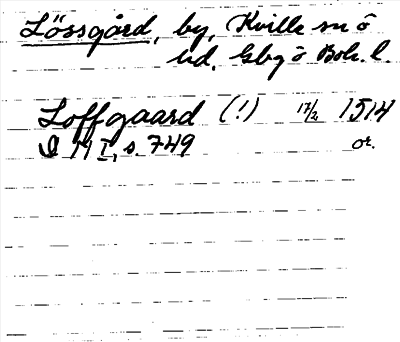 Lössgård, by, Kville sn ö
ud, Gbg o Boh. l.
Loffgaard (!) 17/2 1514
NM I, s. 749 or.